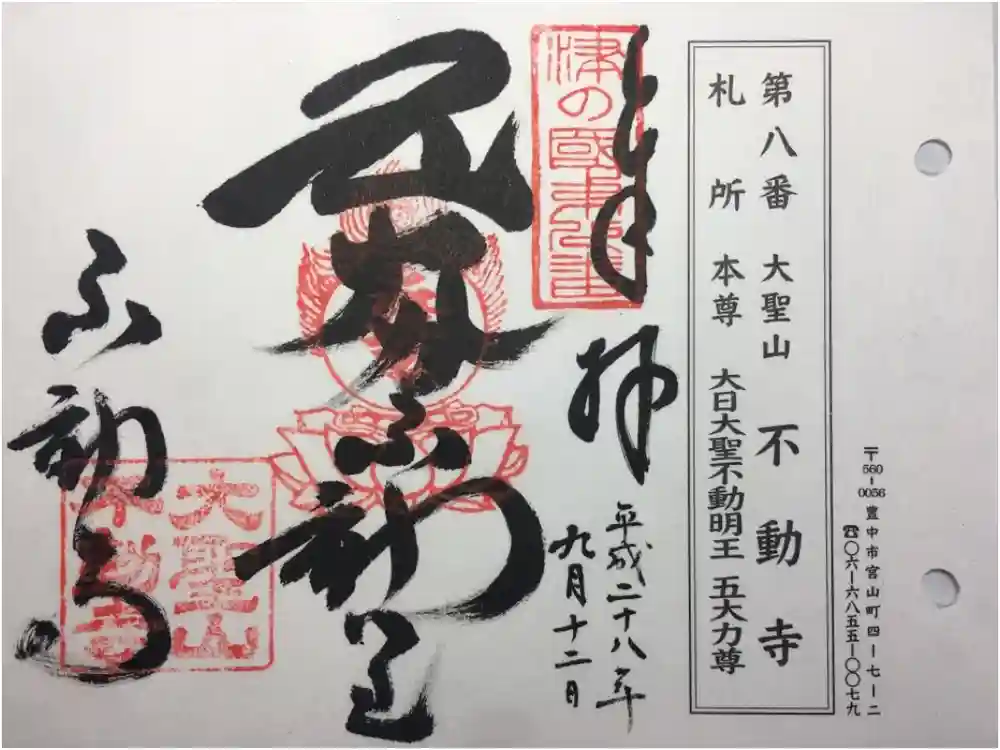 〒560-0056 豊中市宮山町四ー七ー二
☎〇六ー六八五五ー〇〇七九
第八番 大聖山 不動寺
札所 本尊 大日大聖不動明王 五大力尊
奉拝
平成二十八年
九月十二日
津の國
五大力不動尊
不動寺
大聖山
不動寺